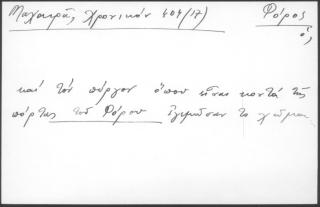 Μαχαιρᾶς, Χρονικόν 404/17) Φόρος
ὁ,
καὶ τὸν πύργον ὅπου εἶναι κοντὰ τῆς
πόρτας τοῦ Φόρου ἐγεμῶσαν το χῶμαν